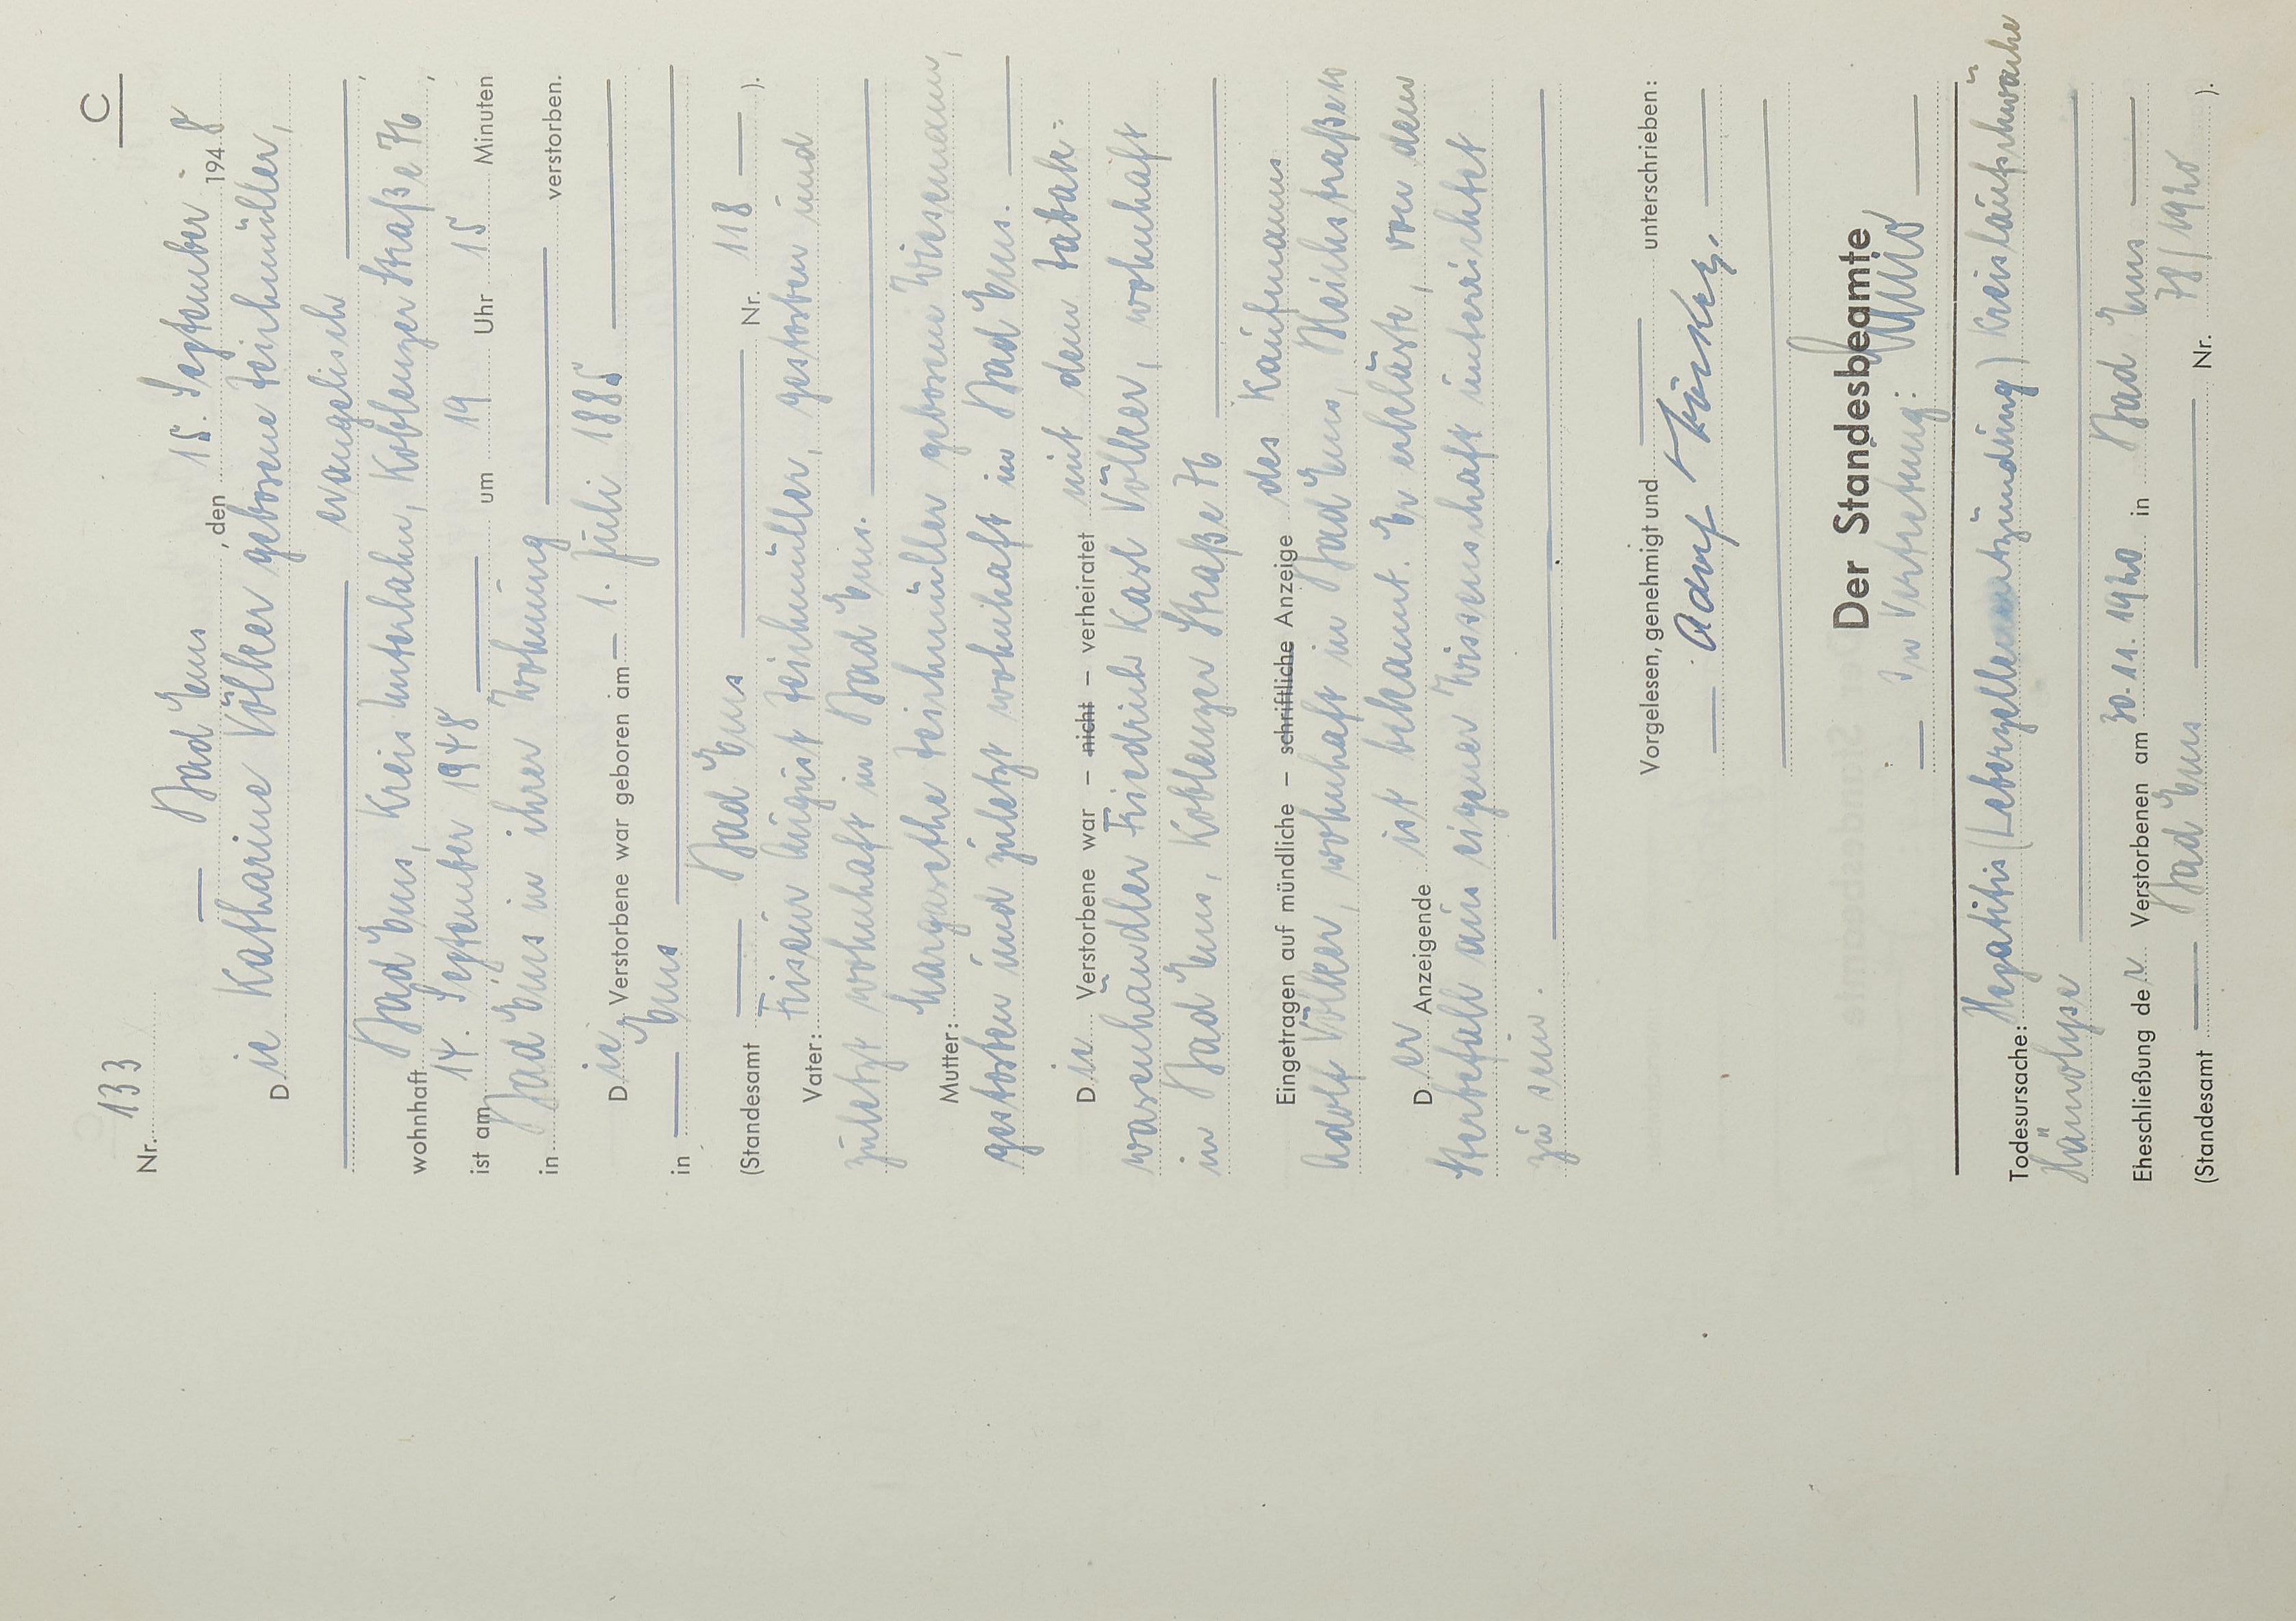 C
Nr. 133
Bad Ems, den 15. September 1948
Die Katharine Völker geborene Teichmüller,
evangelisch,
wohnhaft Bad Ems, Kreis Unterlahn, Koblenzer Straße 76,
ist am 14. September 1948 um 19 Uhr 15 Minuten
in Bad Ems in ihrer Wohnung verstorben.
Die Verstorbene war geboren am 1. Juli 1885
in Ems
(Standesamt Bad Ems Nr. 118).
Vater: Friseur August Teichmüller, gestorben und
zuletzt wohnhaft in Bad Ems.
Mutter: Margarethe Teichmüller geborene Wiesemann,
gestorben und zuletzt wohnhaft in Bad Ems.
Die Verstorbene war – nicht – verheiratet mit dem Tabak=
warenhändler Friedrich Karl Völker, wohnhaft
in Bad Ems, Koblenzer Straße 76
Eingetragen auf mündliche – schriftliche Anzeige des Kaufmanns
Adolf Völker, wohnhaft in Bad Ems, Bleichstraße 10
Der Anzeigende ist bekannt. Er erklärte, von dem
Sterbefall aus eigener Wissenschaft unterrichtet
zu sein.
Vorgelesen, genehmigt und unterschrieben:
Adolf Völker
Der Standesbeamte
In Vertretung:
Todesursache: Hepatitis (Leberzellenentzündung) Kreislaufschwäche
Hämolyse
Eheschließung der Verstorbenen am 30.11.1920 in Bad Ems
(Standesamt Bad Ems Nr. 78/1920).